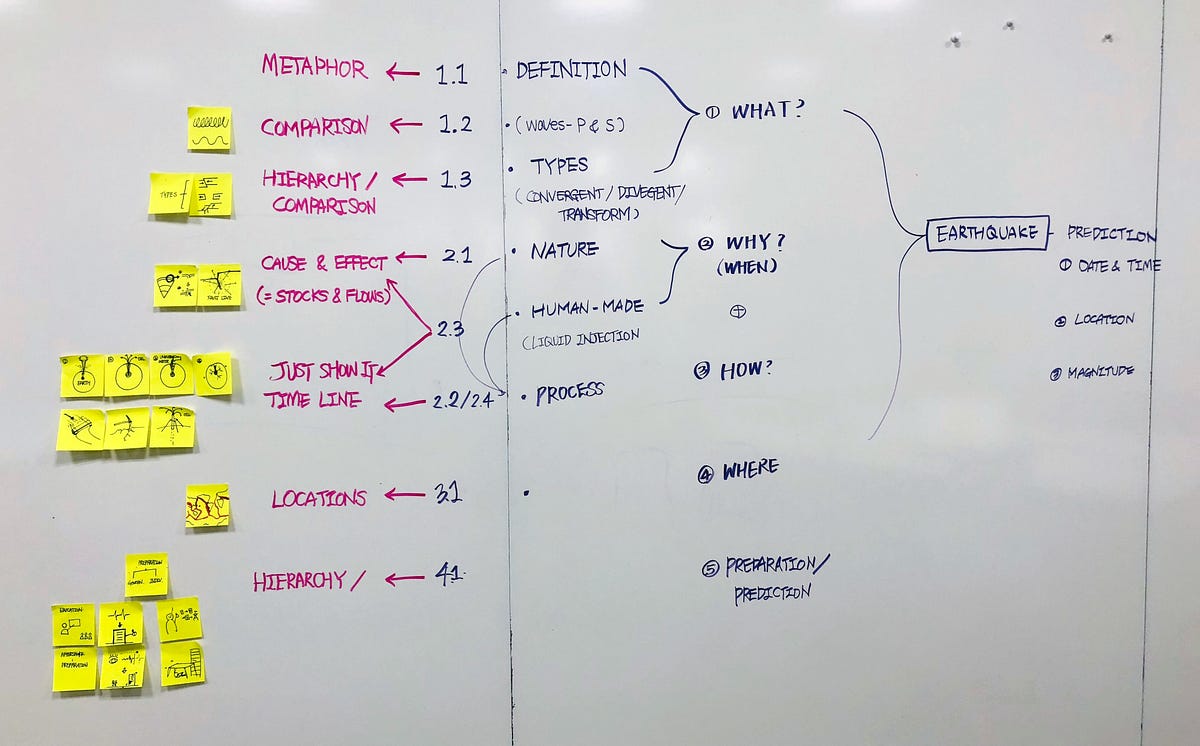 METAPHOR ← 1.1 • DEFINITION
① WHAT?
COMPARISON ← 1.2 • (WAVES-P & S)
HIERARCHY / ← 1.3 • TYPES
COMPARISON
(CONVERGENT / DIVEGENT/
TRANSFORM)
TYPES
EARTHQUAKE - PREDICTION
① DATE & TIME
② LOCATION
③ MAGNITUDE
CAUSE & EFFECT ← 2.1 • NATURE
(= STOCKS & FLOWS)
② WHY?
(WHEN)
2.3 • HUMAN-MADE
(LIQUID INJECTION
+
JUST SHOW IT
③ HOW?
TIME LINE ← 2.2/2.4 • PROCESS
EARTH
④ WHERE
LOCATIONS ← 3.1 •
HIERARCHY / ← 4.1
⑤ PREPARATION/
PREDICTION
PREPARATION
EDUCATION
PREPARATION